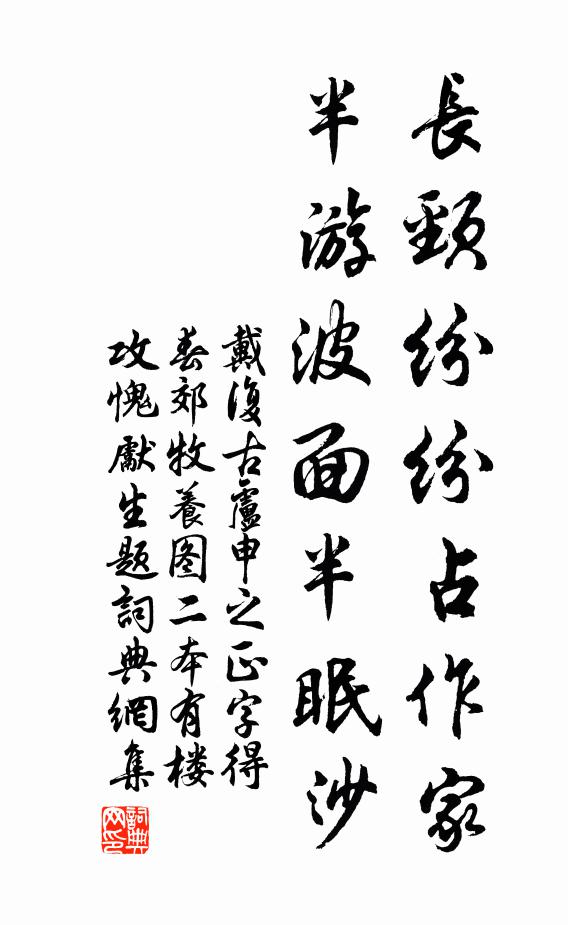 長頸紛紛占作家
半游波面半眠沙
戴復古盧申之正字得
春郊牧養图二本有楼
攻愧獻生題詞典網集
詞典网印